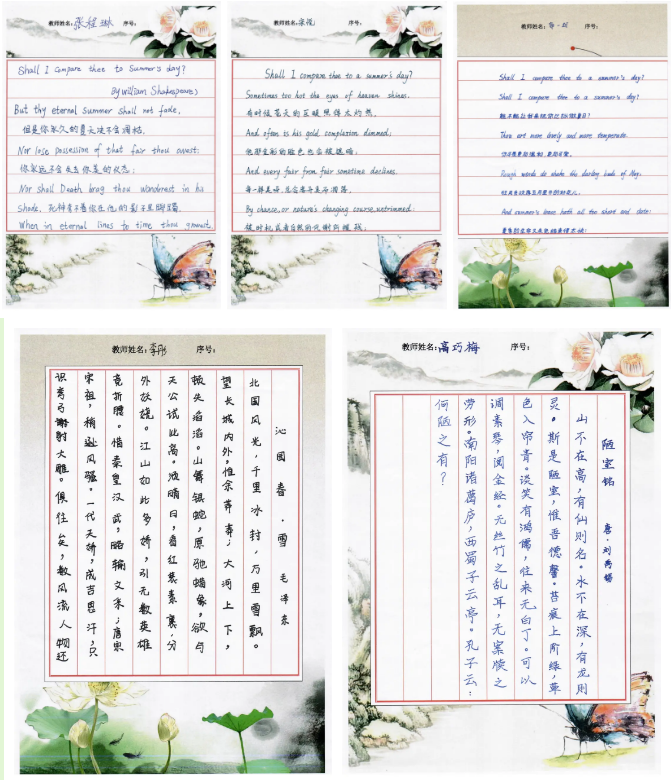 教师姓名：张程琳 序号：
Shall I compare thee to Summer's day?
By William Shakespeares
But thy eternal summer shall not fade,
但是你永久的夏天决不会凋枯.
Nor lose possession of that fair thou owest:
你永远不会失去你美的仪态;
Nor shall Death brag thou wanderest in his
shade. 死神夸不着你在他的影子里踯躅.
When in eternal lines to time thou growest.
教师姓名： 序号：
Shall I compare thee to a summer's day?
Sometimes too hot the eyes of heaven shines.
有时候苍天的巨眼照得太灼热.
And often is his gold complexion dimmed;
他那金彩的脸色也会被遮暗;
And every fair from fair sometime declines.
每一样美呀,总会离开美而凋落.
By chance, or nature's changing course, untrimmed;
被时机或者自然的代谢所摧残;
教师姓名： 序号：
Shall I compare thee to a summer's day?
Shall I compare thee to a summer's day?
Thou art more lovely and more temperate.
Rough winds do shake the darling buds of May.
And summer's lease hath all too short and date:
教师姓名：李彤 序号：
沁园春·雪 毛泽东
北国风光，千里冰封，万里雪飘。
望长城内外，惟余莽莽；大河上下，
顿失滔滔。山舞银蛇，原驰蜡象，欲与
天公试比高。须晴日，看红装素裹，分
外妖娆。江山如此多娇，引无数英雄
竞折腰。惜秦皇汉武，略输文采；唐宗
宋祖，稍逊风骚。一代天骄，成吉思汗，只
识弯弓射大雕。俱往矣，数风流人物还
教师姓名：高巧梅 序号：
陋室铭 唐·刘禹锡
山不在高，有仙则名。水不在深，有龙则
灵。斯是陋室，惟吾德馨。苔痕上阶绿，草
色入帘青。谈笑有鸿儒，往来无白丁。可以
调素琴，阅金经。无丝竹之乱耳，无案牍之
劳形。南阳诸葛庐，西蜀子云亭。孔子云：
何陋之有？